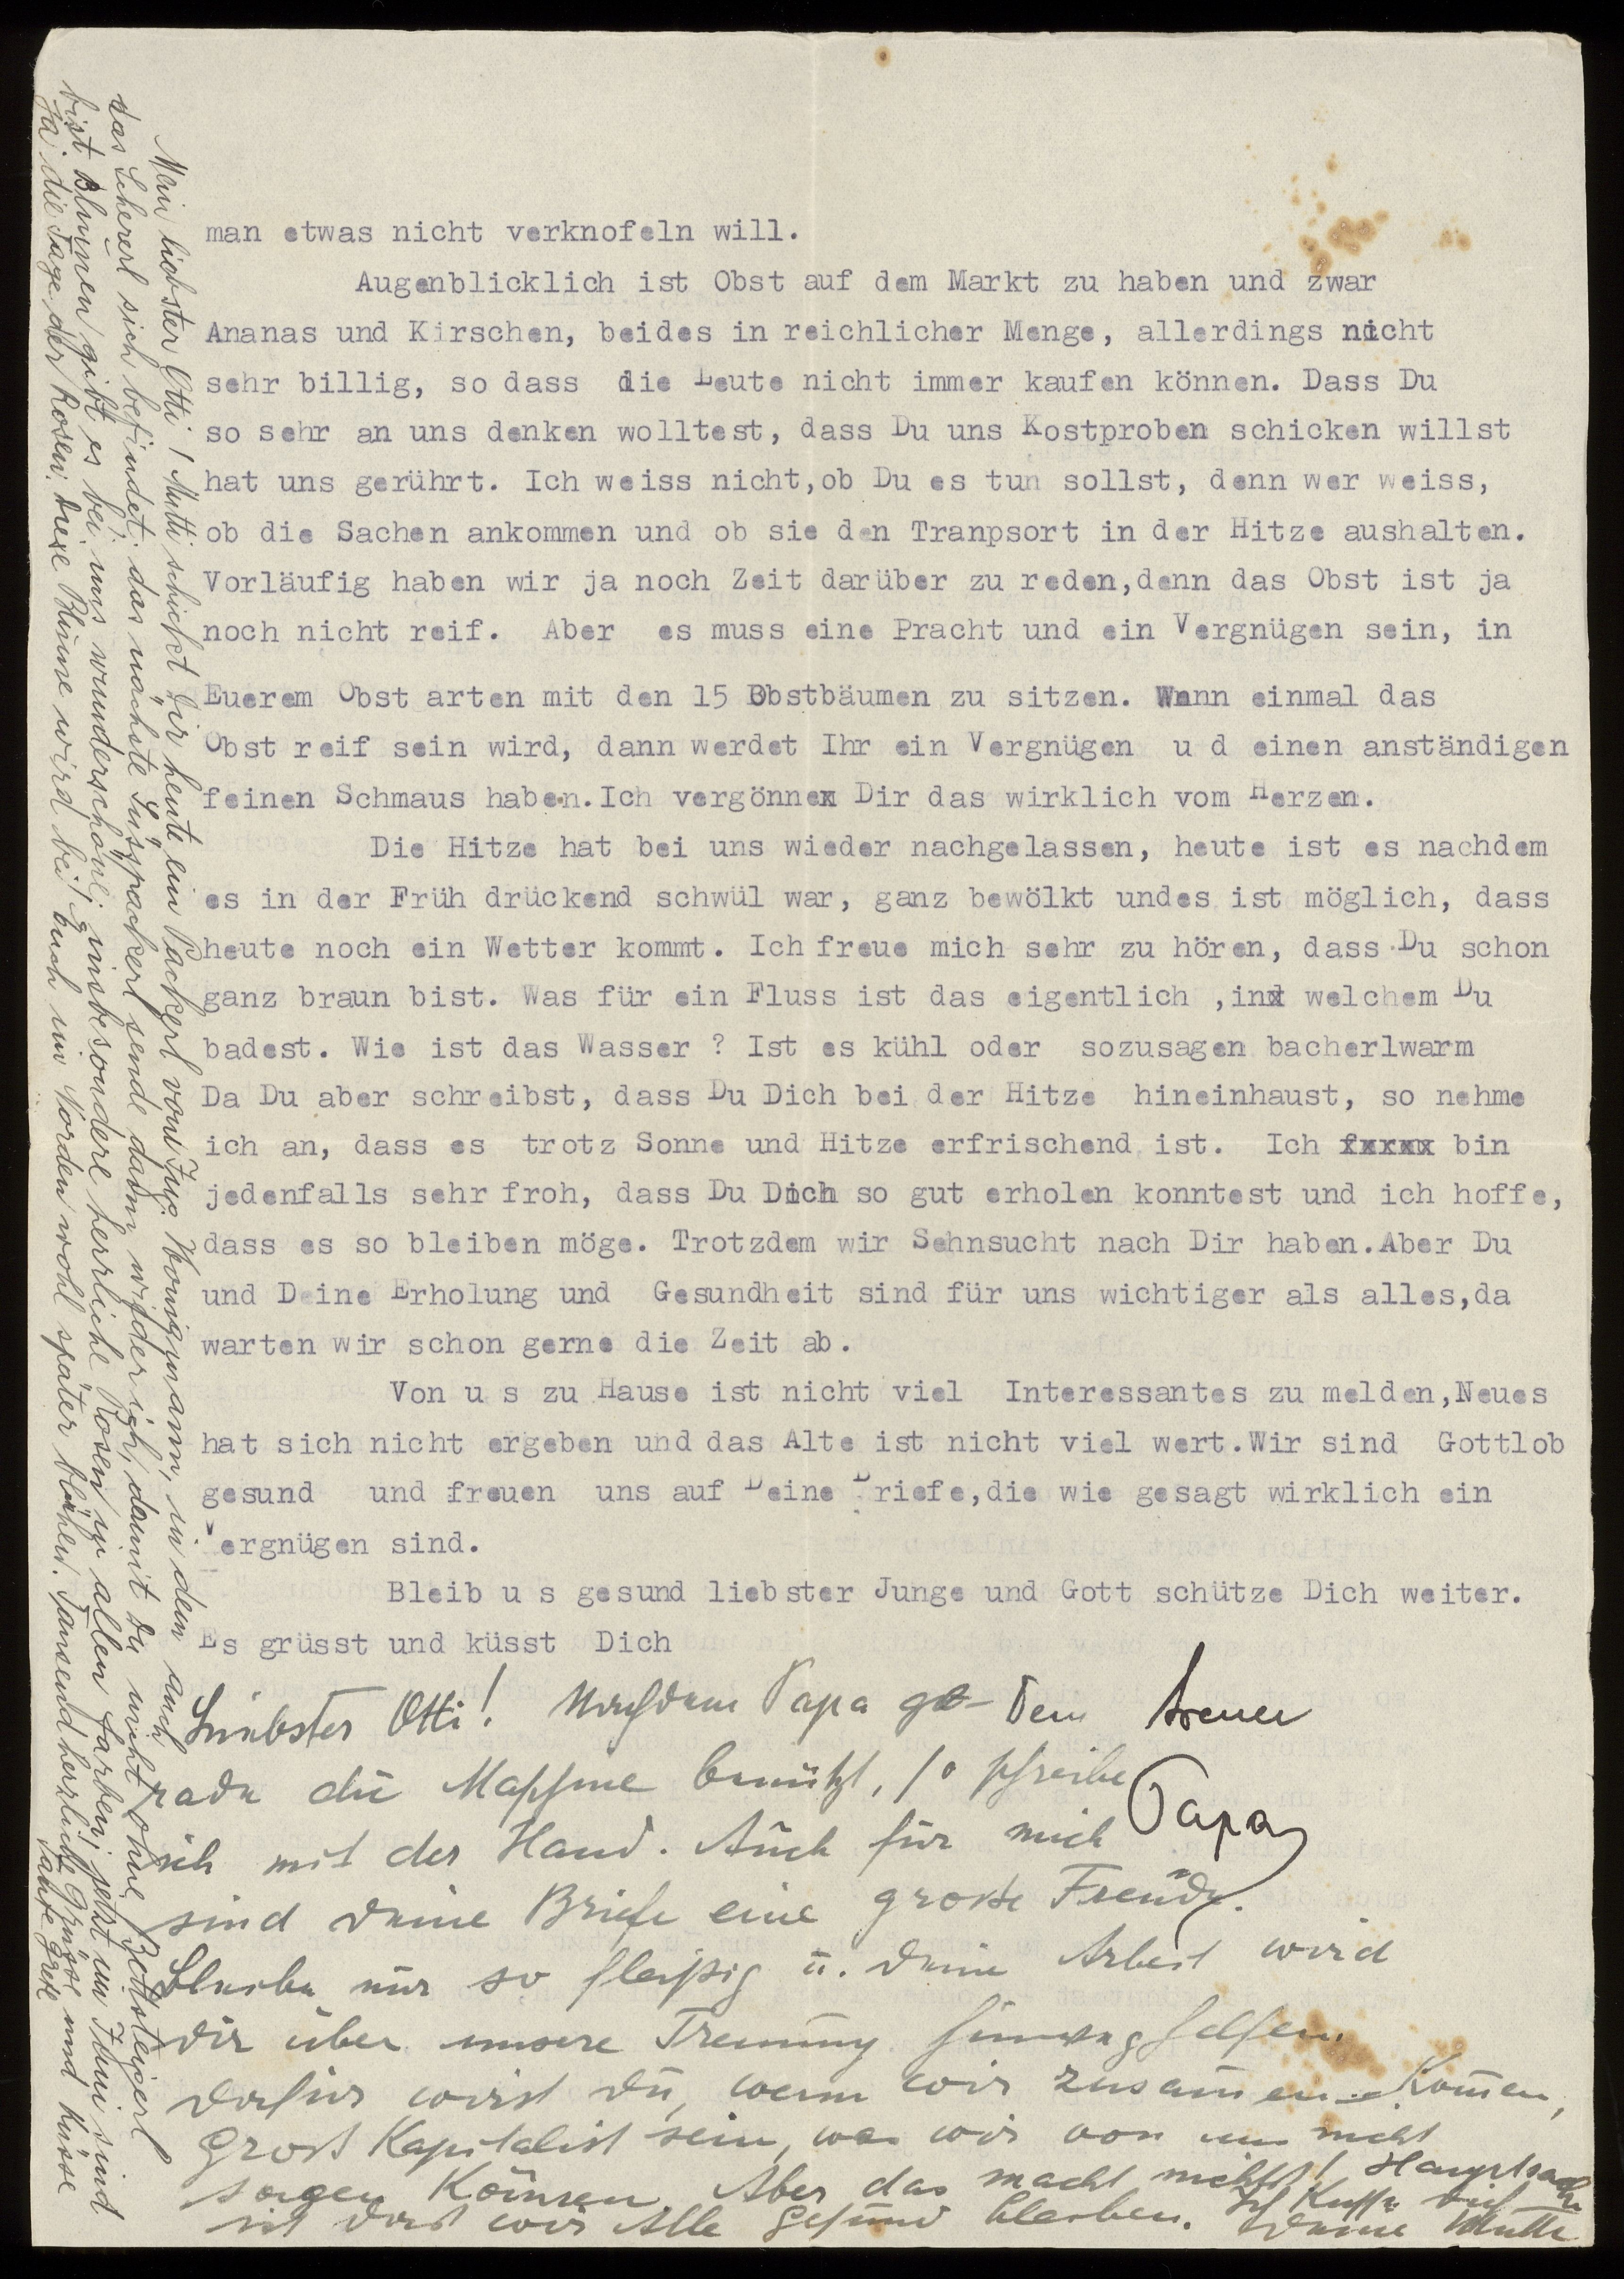 man etwas nicht verknofeln will.
Augenblicklich ist Obst auf dem Markt zu haben und zwar
Ananas und Kirschen, beides in reichlicher Menge, allerdings nicht
sehr billig, so dass die Leute nicht immer kaufen können. Dass Du
so sehr an uns denken wolltest, dass Du uns Kostproben schicken willst
hat uns gerührt. Ich weiss nicht,ob Du es tun sollst, denn wer weiss,
ob die Sachen ankommen und ob sie den Tranpsort in der Hitze aushalten.
Vorläufig haben wir ja noch Zeit darüber zu reden,denn das Obst ist ja
noch nicht reif. Aber es muss eine Pracht und ein Vergnügen sein, in
Euerem Obst arten mit den 15 Obstbäumen zu sitzen. Wenn einmal das
Obst reif sein wird, dann werdet Ihr ein Vergnügen u d einen anständigen
feinen Schmaus haben.Ich vergönnex Dir das wirklich vom Herzen.
Die Hitze hat bei uns wieder nachgelassen, heute ist es nachdem
es in der Früh drückend schwül war, ganz bewölkt undes ist möglich, dass
heute noch ein Wetter kommt. Ich freue mich sehr zu hören, dass Du schon
ganz braun bist. Was für ein Fluss ist das eigentlich ,inx welchem Du
badest. Wie ist das Wasser ? Ist es kühl oder sozusagen bacherlwarm
Da Du aber schreibst, dass Du Dich bei der Hitze hineinhaust, so nehme
ich an, dass es trotz Sonne und Hitze erfrischend ist. Ich fxxxx bin
jedenfalls sehr froh, dass Du Dich so gut erholen konntest und ich hoffe,
dass es so bleiben möge. Trotzdem wir Sehnsucht nach Dir haben.Aber Du
und Deine Erholung und Gesundheit sind für uns wichtiger als alles,da
warten wir schon gerne die Zeit ab.
Von u s zu Hause ist nicht viel Interessantes zu melden,Neues
hat sich nicht ergeben und das Alte ist nicht viel wert.Wir sind Gottlob
gesund und freuen uns auf Deine Briefe,die wie gesagt wirklich ein
Vergnügen sind.
Bleib u s gesund liebster Junge und Gott schütze Dich weiter.
Es grüsst und küsst Dich
Dein treuer
Papa
Liebster Otti! Nachdem Papa ge-
rade die Maschine benützt, so schreibe
ich mit der Hand. Auch für mich
sind deine Briefe eine große Freude.
Bleibe nur so fleißig u. deine Arbeit wird
dir über unsere Trennung hinweghelfen.
Dafür wirst du, wenn wir zusammen kommen,
Gross Kapitalist sein, was wir von uns nicht
sagen können. Aber das macht nichts! Hauptsache
ist dass wir Alle gesund bleiben. Ich küsse dich
Deine Mutti
Mein liebster Otti! Mutti schickt Dir heute ein Packerl vom Fuß. Honigmann, in dem auch
das Scherерl sich befindet; das nächste Süßpackerl sende dann wieder ich, damit Du nicht ohne Betthupferl
bist. Blumen gibt es bei uns wunderschöne, insbesondere herrliche Rosen in allen Farben; jetzt im Juni sind
ja die Tage der Rosen. Diese Blume wird bei Euch im Norden wohl später blühen. Tausend herzlichste Grüsse und Küsse
Tante Grete